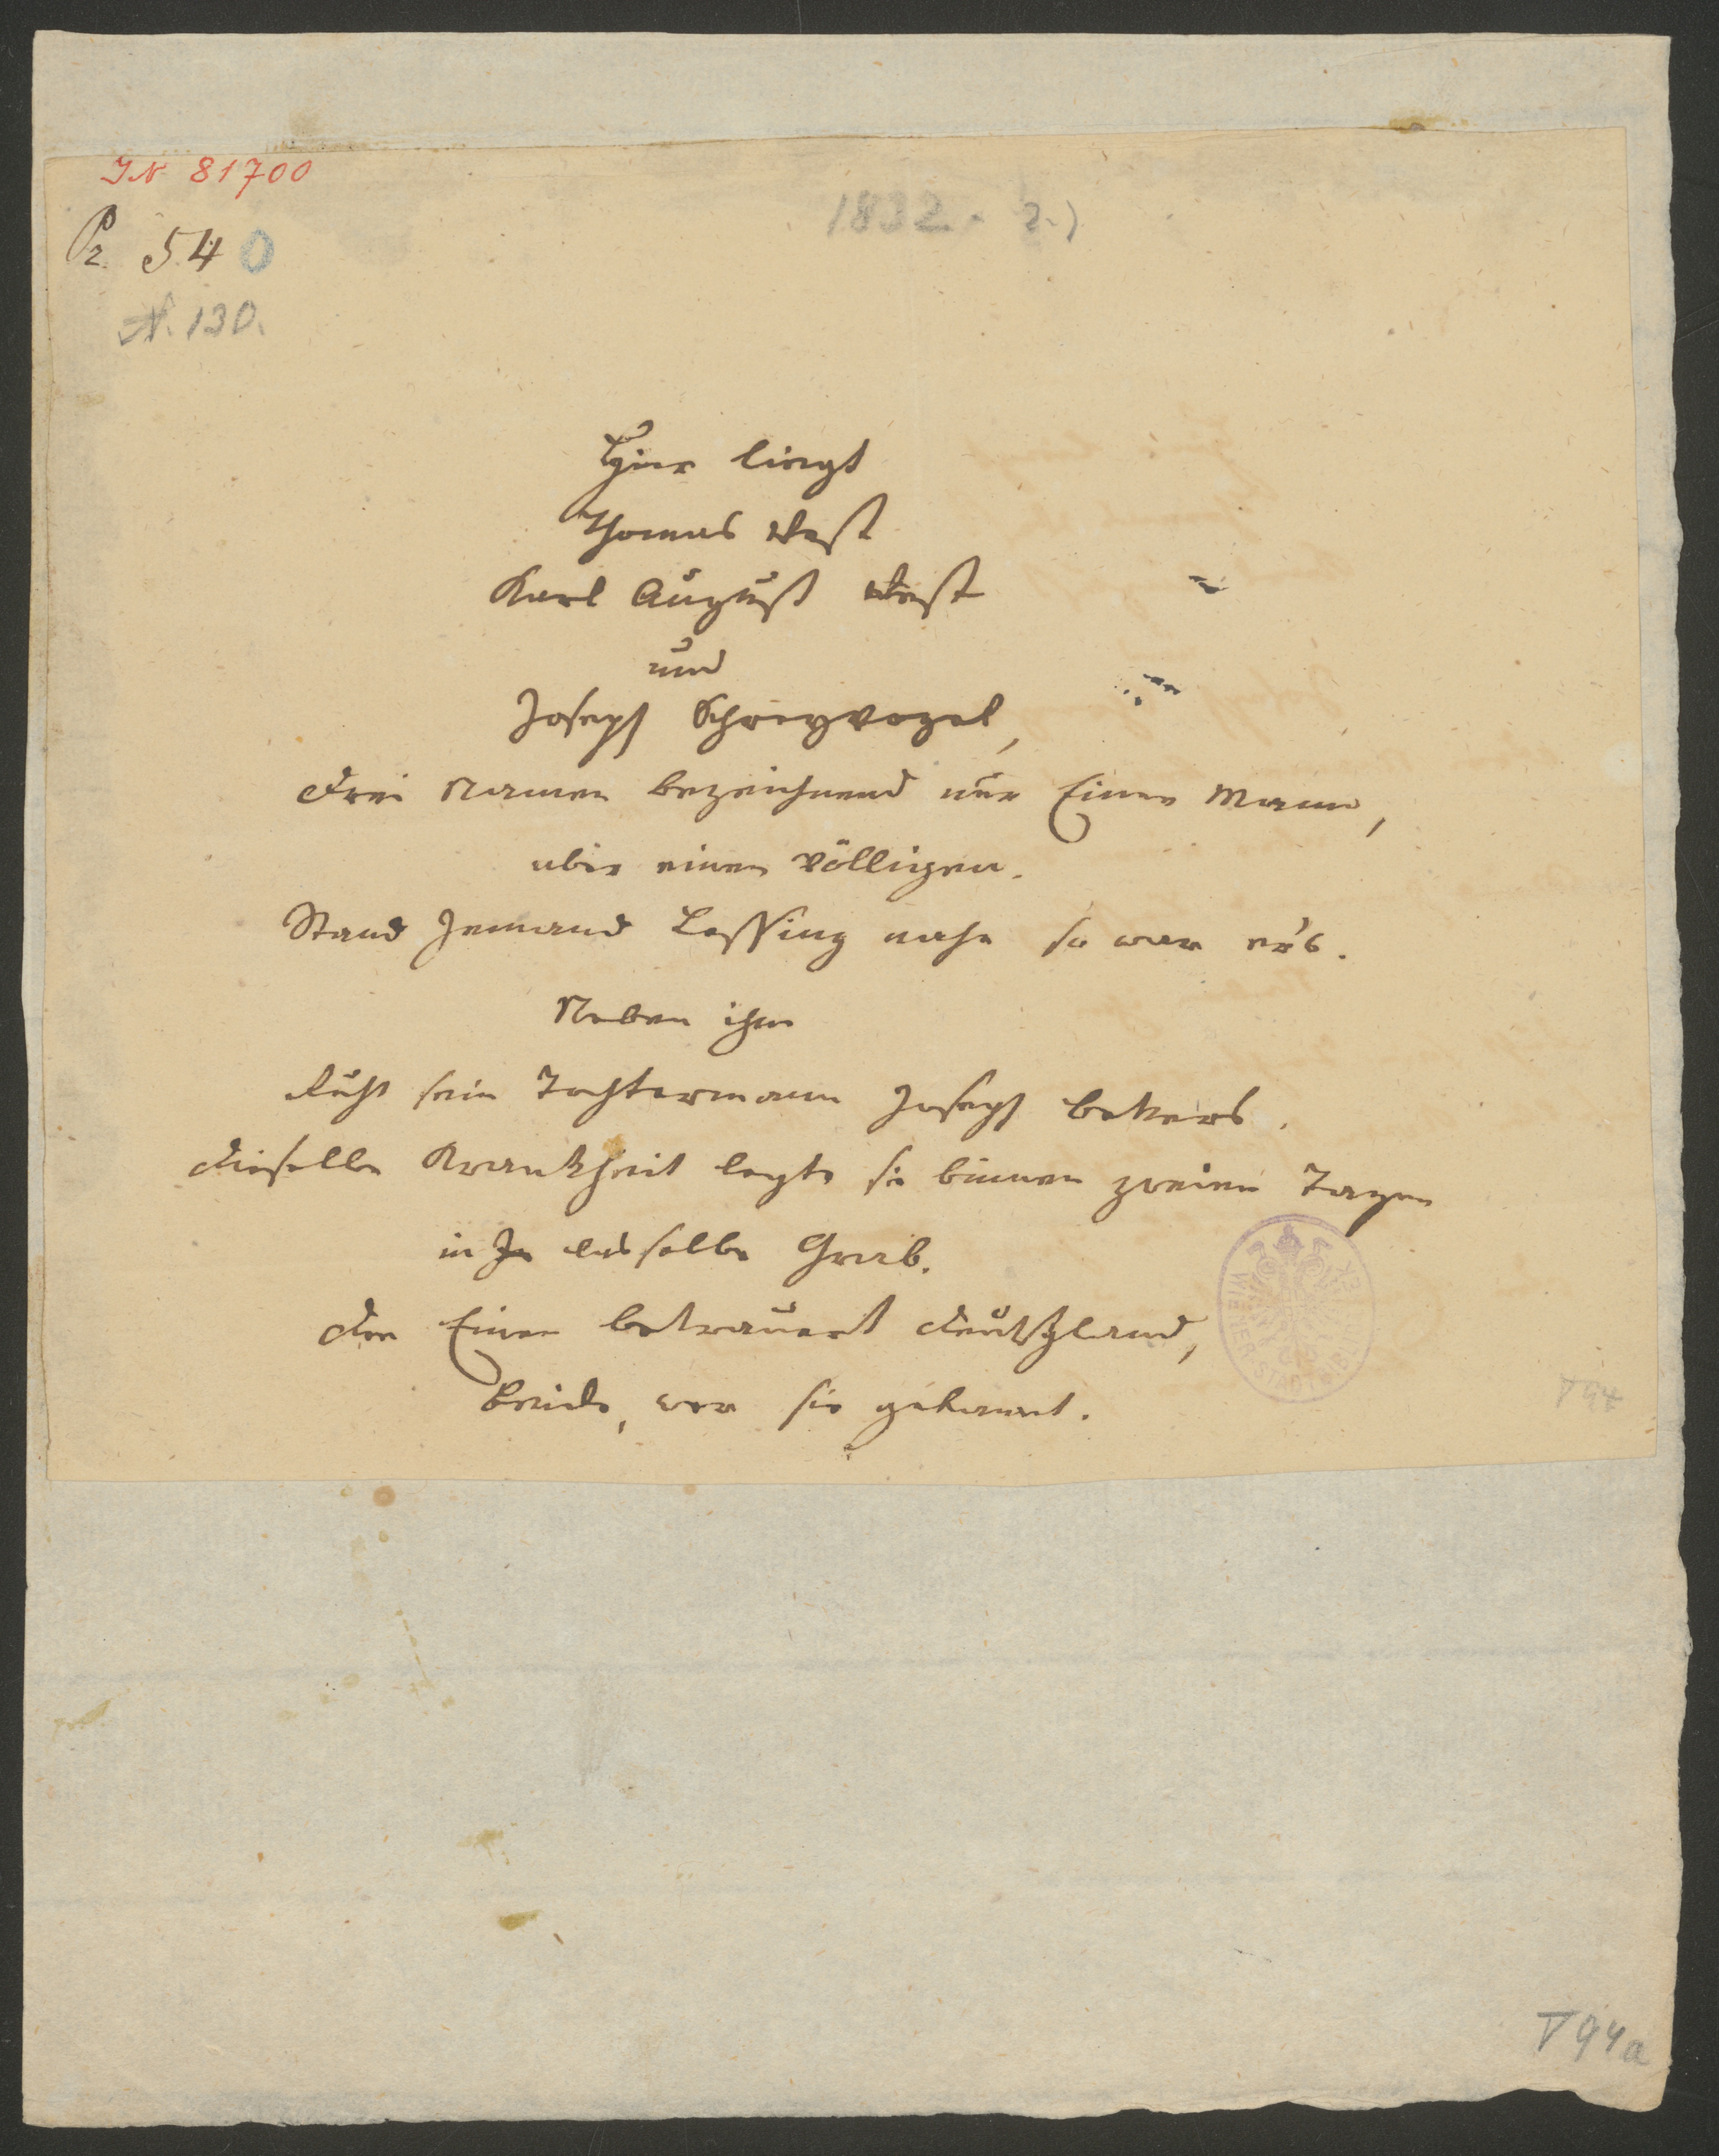 IN 81700
1832. 2.)
Pr. 540
N. 130.
Hier liegt
Thomas West
Karl August West
und
Joseph Schreyvogel,
Drei Namen bezeichnend nur Einen Mann,
aber einen völligen.
Stand Jemand Lessing nahe so war er's.
Neben ihm
Ruht sein Tochtermann Joseph
Dieselbe Krankheit legte sie binnen zweien Tagen
in dasselbe Grab.
Den Einen betrauert Deutschland,
Beide, wer sie gekannt.
WIENER STADTBIBL
T 94
T 94a